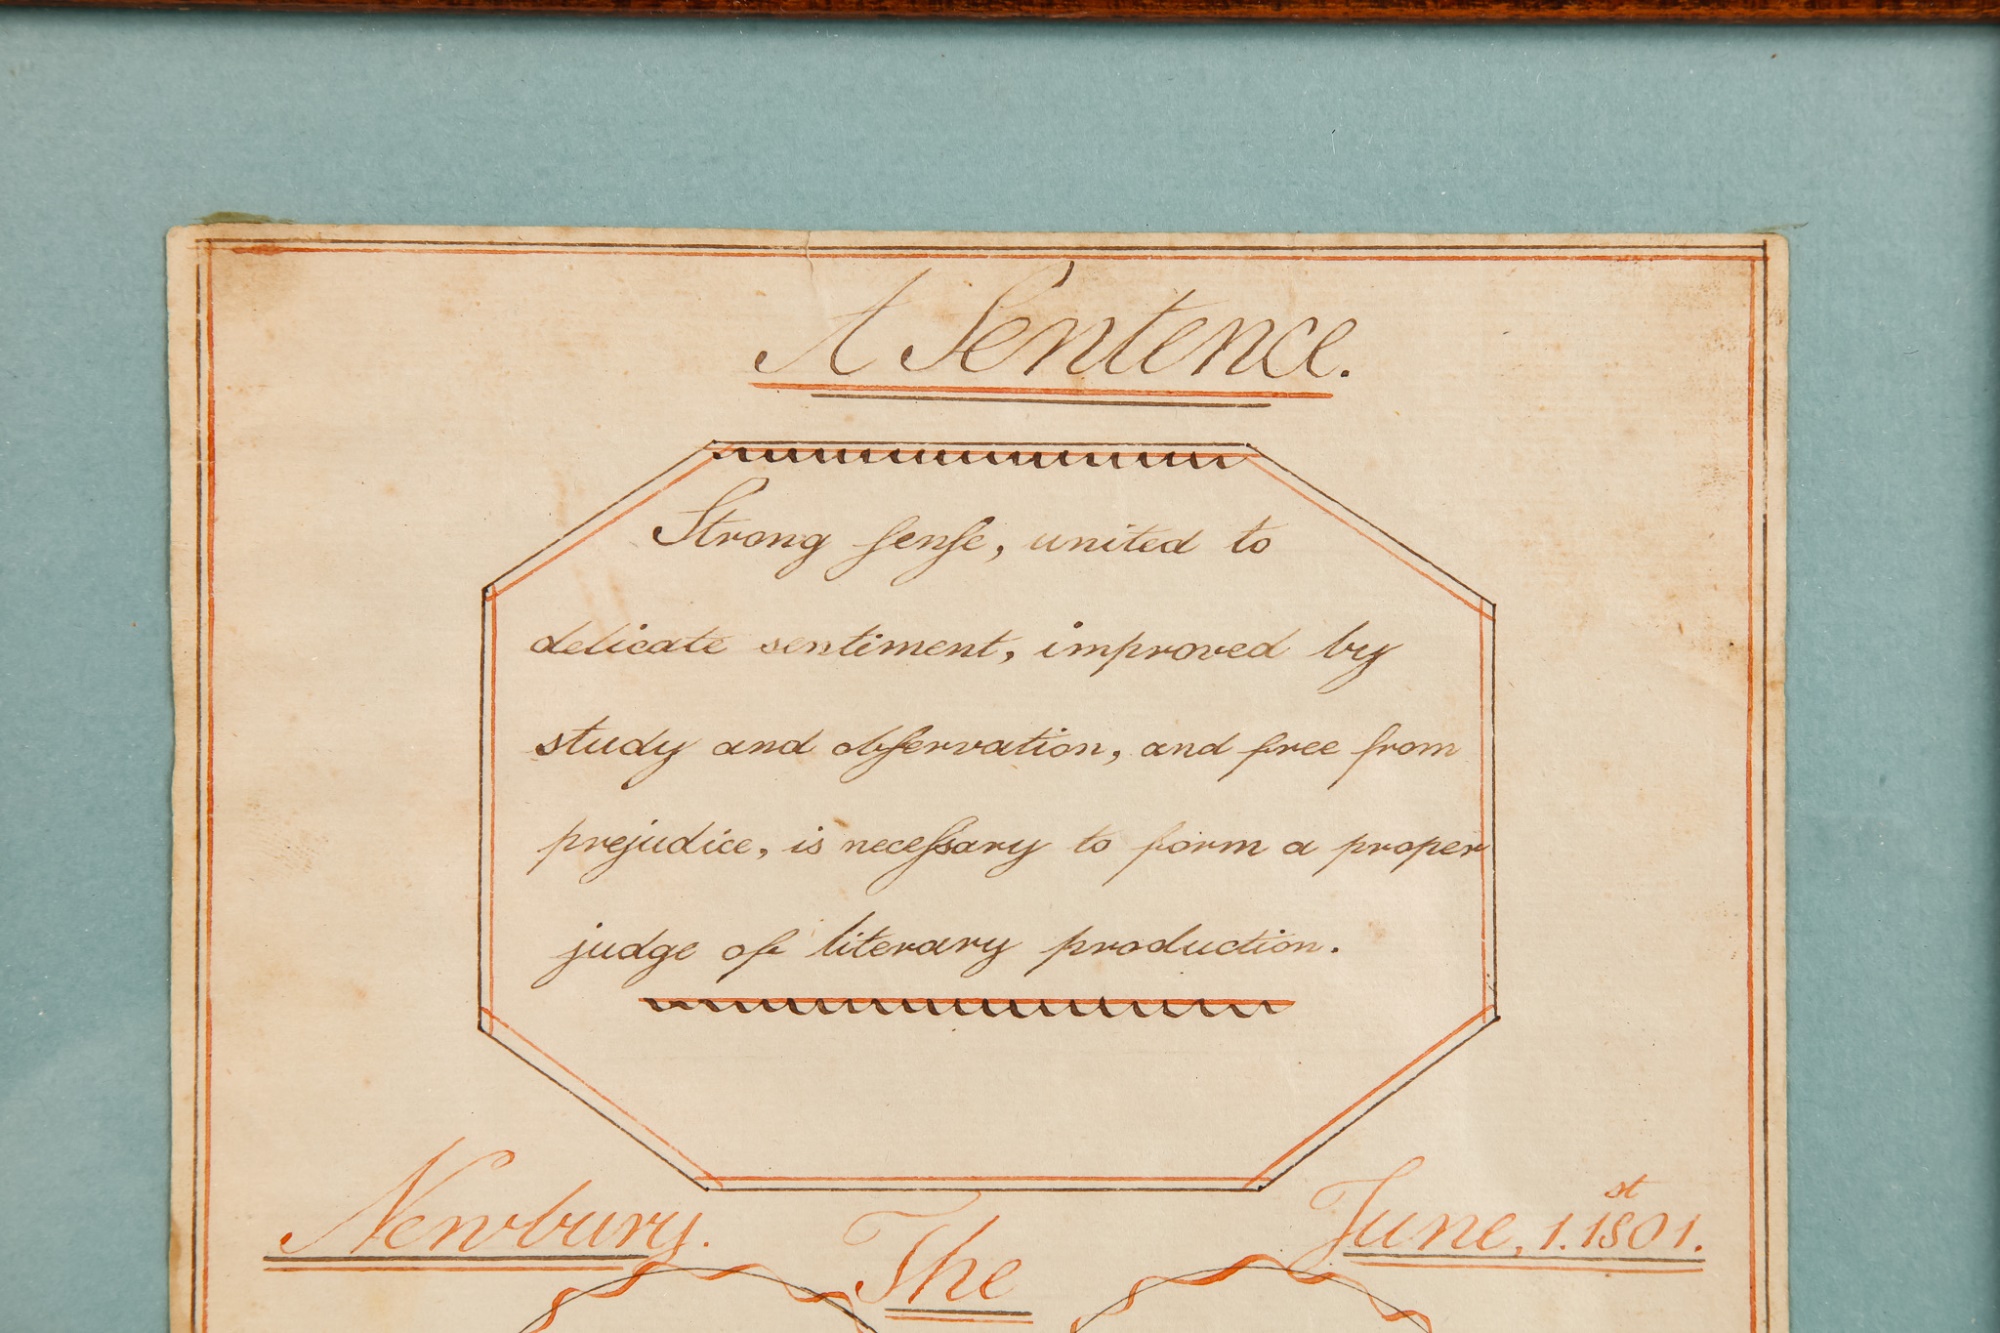 A Sentence.
Strong ſenſe, united to
delicate sentiment, improved by
study and obſervation, and free from
prejudice, is neceſsary to form a proper
judge of literary production.
Newbury. The June, 1.st 1801.